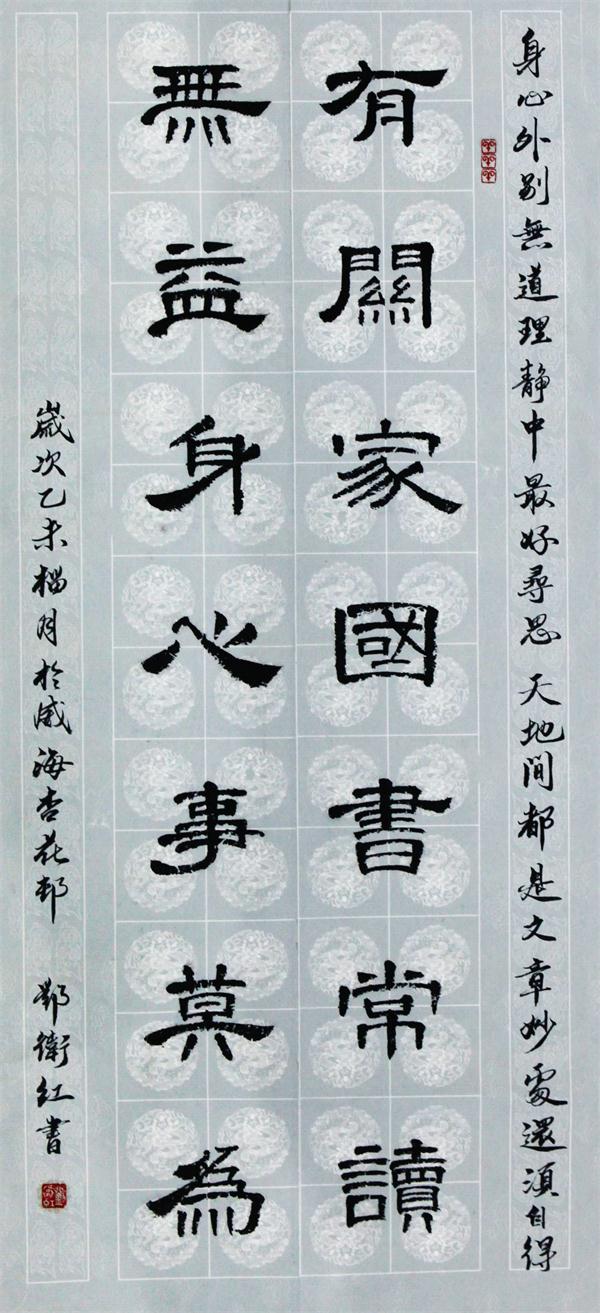 身心外别無道理静中最好尋思 天地間都是文章妙處還須自得
有關家國書常讀
無益身心事莫為
歲次乙未榴月於威海杏花邨 鄧衛紅書